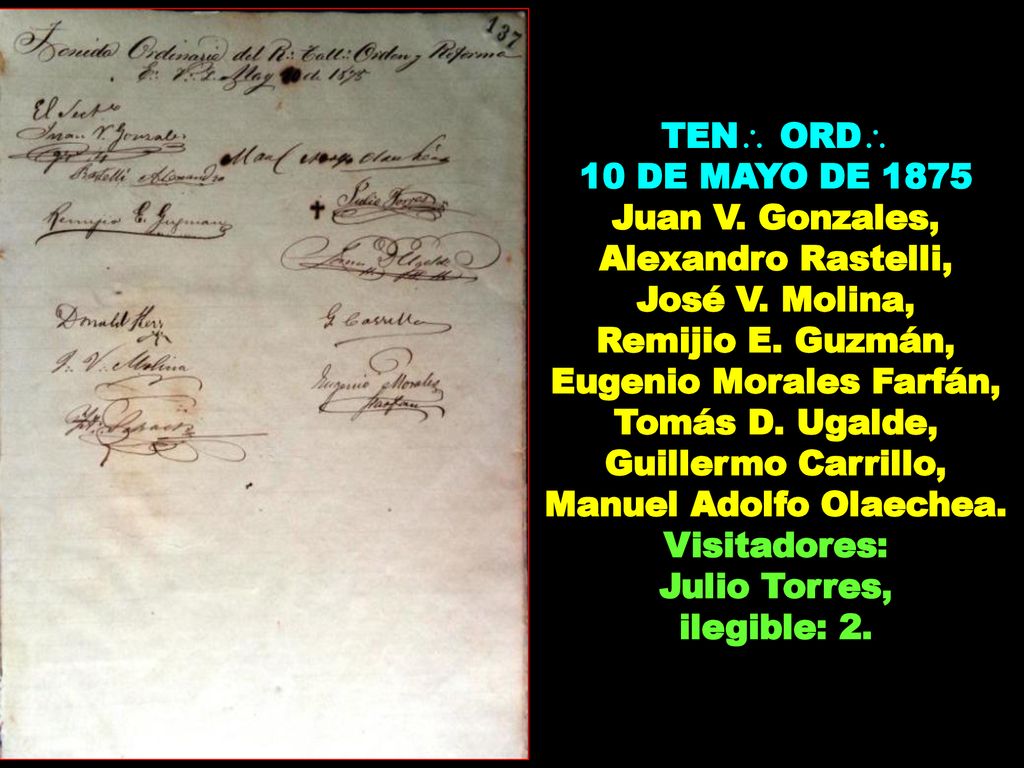 137
Tenida Ordinaria del R∴ Tall∴ Orden y Reforma
E∴ V∴ Mayo 10 de 1875
El Sect
Juan V. Gonzales
Rastelli Alexandro
Olaechea
Remijio E. Guzman
Julio Torres
D Ugalde
Donald Kerr
G Carrillo
J. V. Molina
Eugenio Morales
Farfan
TEN∴ ORD∴
10 DE MAYO DE 1875
Juan V. Gonzales,
Alexandro Rastelli,
José V. Molina,
Remijio E. Guzmán,
Eugenio Morales Farfán,
Tomás D. Ugalde,
Guillermo Carrillo,
Manuel Adolfo Olaechea.
Visitadores:
Julio Torres,
ilegible: 2.